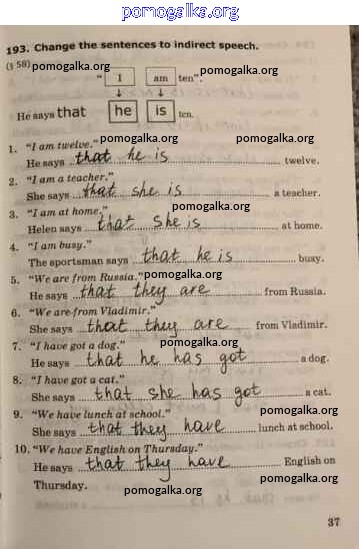 pomogalka.org
193. Change the sentences to indirect speech.
(§ 58) pomogalka.org pomogalka.org
" I am ten".
pomogalka.org
He says that he is ten.
pomogalka.org pomogalka.org
1. "I am twelve."
He says that he is twelve.
2. "I am a teacher." pomogalka.org
She says that she is a teacher.
3. "I am at home." pomogalka.org
Helen says that she is at home.
4. "I am busy." pomogalka.org
The sportsman says that he is busy.
5. "We are from Russia." pomogalka.org
He says that they are from Russia.
6. "We are from Vladimir." pomogalka.org
She says that they are from Vladimir.
7. "I have got a dog." pomogalka.org
He says that he has got a dog.
8. "I have got a cat." pomogalka.org
She says that she has got a cat.
9. "We have lunch at school." pomogalka.org
She says that they have lunch at school.
10. "We have English on Thursday." pomogalka.org
He says that they have English on
Thursday. pomogalka.org
pomogalka.org
37